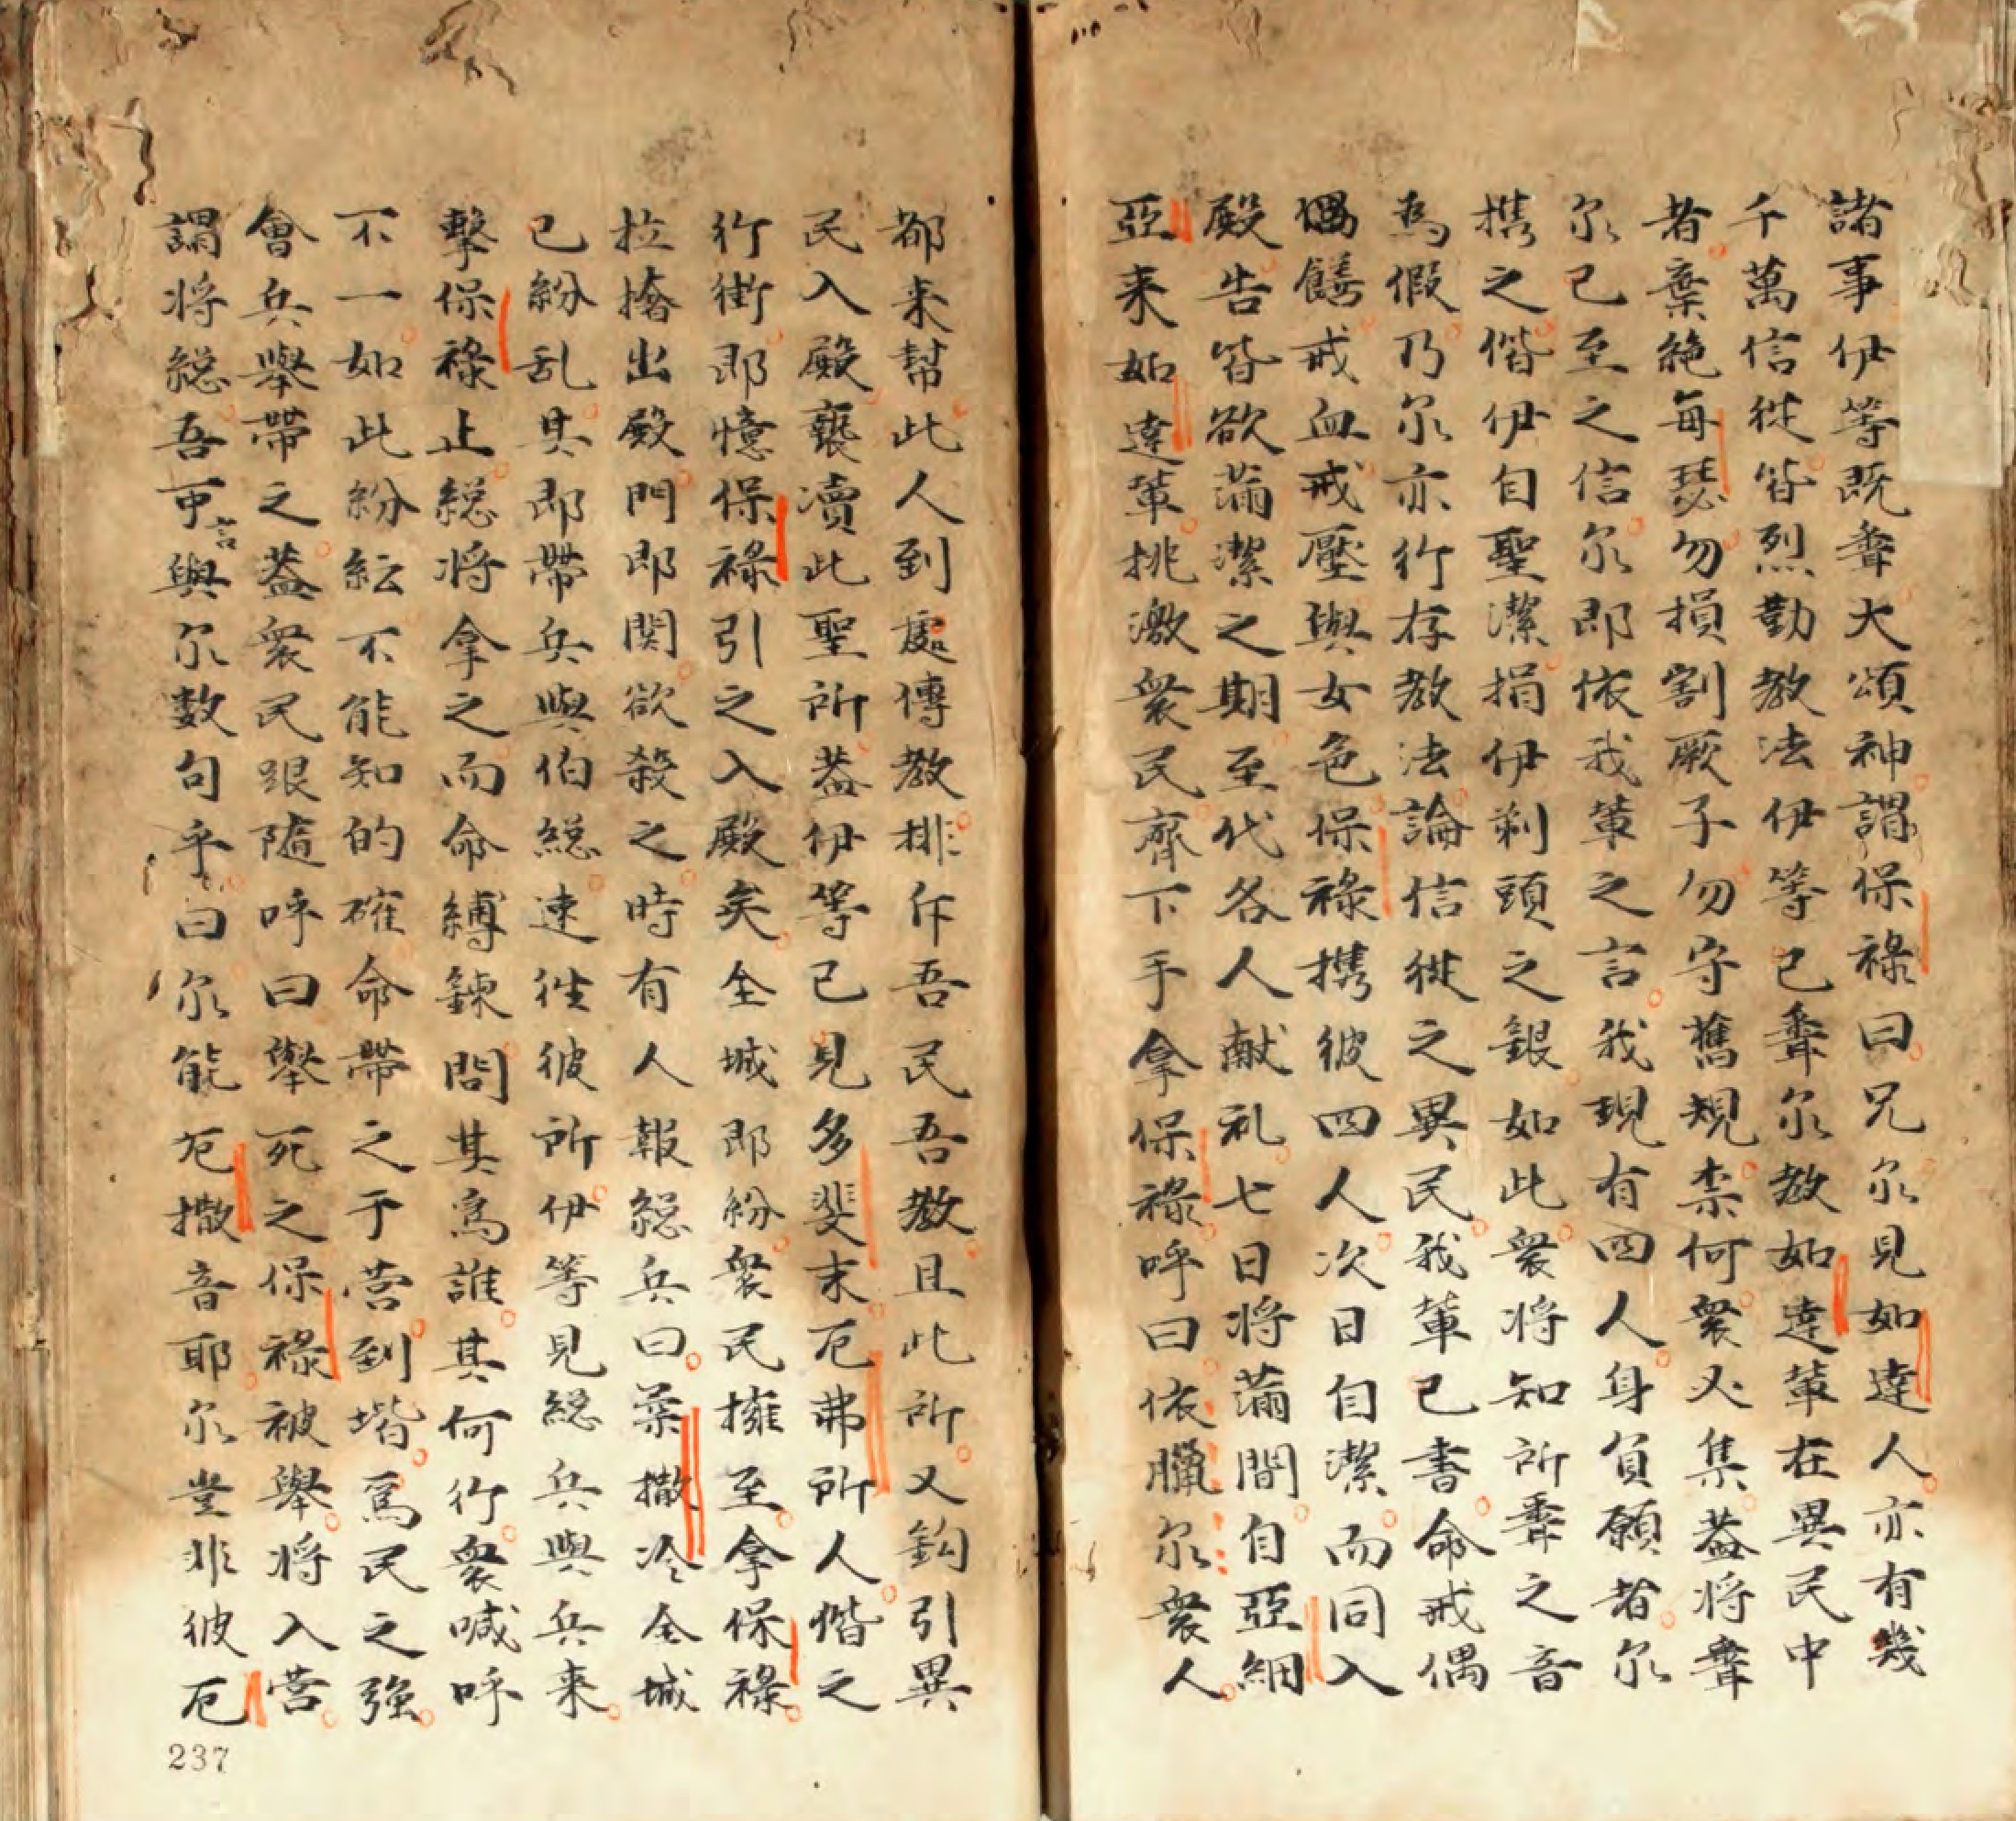 諸事伊等既聋大頌神謂保祿曰兄尔見如達人亦有幾
千萬信徙皆烈勤教法伊等已聋尔教如達軰在異民中
者棄絶每瑟勿損割厥子勿守舊規柰何衆必集葢将聋
尔已至之信尔即依我軰之言我現有四人身負願者尔
携之偕伊自聖潔捐伊剃頭之銀如此衆将知所聋之音
為假乃尔亦行存教法論信徙之異民我軰已書命戒偶
偶饍戒血戒壓與女色保祿携彼四人次日自潔而同入
殿告皆欲滿潔之期至代各人献礼七日将滿間自亞細
亞来如達軰挑激衆民齊下手拿保祿呼曰依臘尔衆人
都来幇此人到處傳教排斥吾民吾教且此所又鈎引異
民入殿褻瀆此聖所葢伊等已見多斐末厄弗所人偕之
行街即憶保祿引之入殿矣全城即紛衆民擁至拿保祿
拉撦出殿門即関欲殺之時有人報総兵曰葉撒冷全城
已紛乱其即帶兵與伯総速徃彼所伊等見総兵與兵来
擊保祿止総将拿之而命縛鍊問其為誰其何行衆喊呼
不一如此紛紜不能知的確命帶之于营到堦為民之强
會兵舉帶之葢衆民跟隨呼曰舉死之保祿被舉将入营
謂将総吾可言與尔数句乎曰尔能厄撒音耶尔豈非彼厄
237